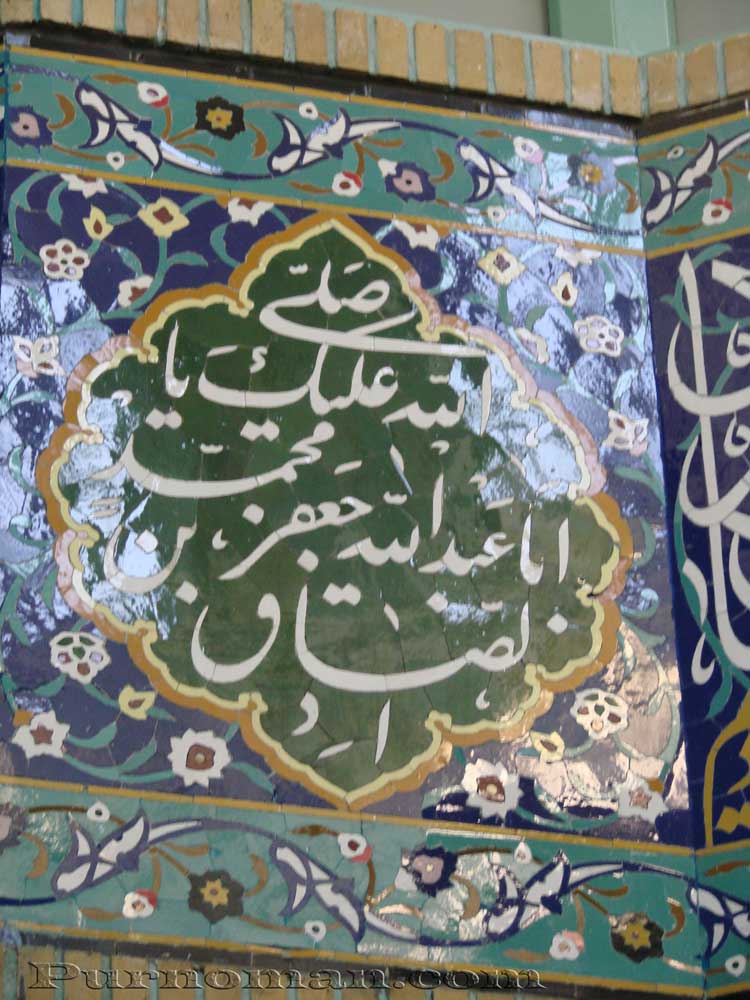 صَلَّی
اللّه علیكَ یا
ابا عَبداللّه جَعفَر بن
محمّد
الصّادق
Purnoman.com